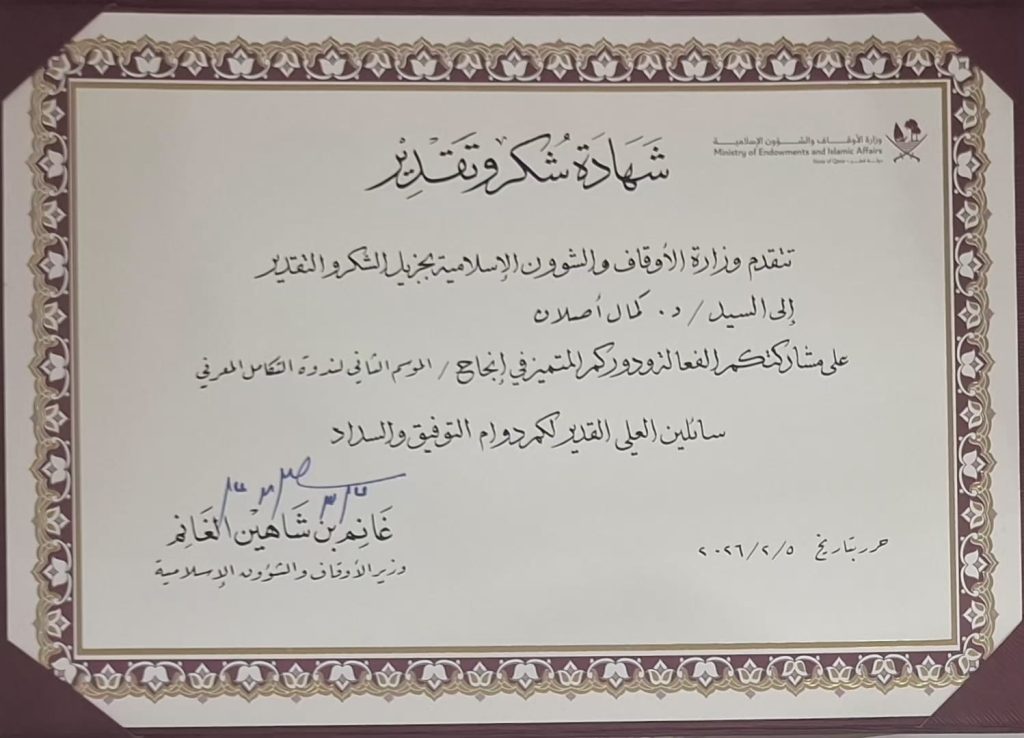 وزارة الأوقاف والشؤون الإسلامية
Ministry of Endowments and Islamic Affairs
State of Qatar - دولة قطر
شَهَادَة شُكر وتَقدِير
تتقدم وزارة الأوقاف والشؤون الإسلامية بجزيل الشكر والتقدير
إلى السيد / د. كمال أصلان
على مشاركتكم الفعالة ودوركم المتميز في إنجاح / الموسم الثاني لندوة التكامل المعرفي
سائلين العلي القدير لكم دوام التوفيق والسداد
حرر بتاريخ ٢٠٢٦/٢/٥
غَانِم بن شَاهين الغَانِم
وزير الأوقاف والشؤون الإسلامية